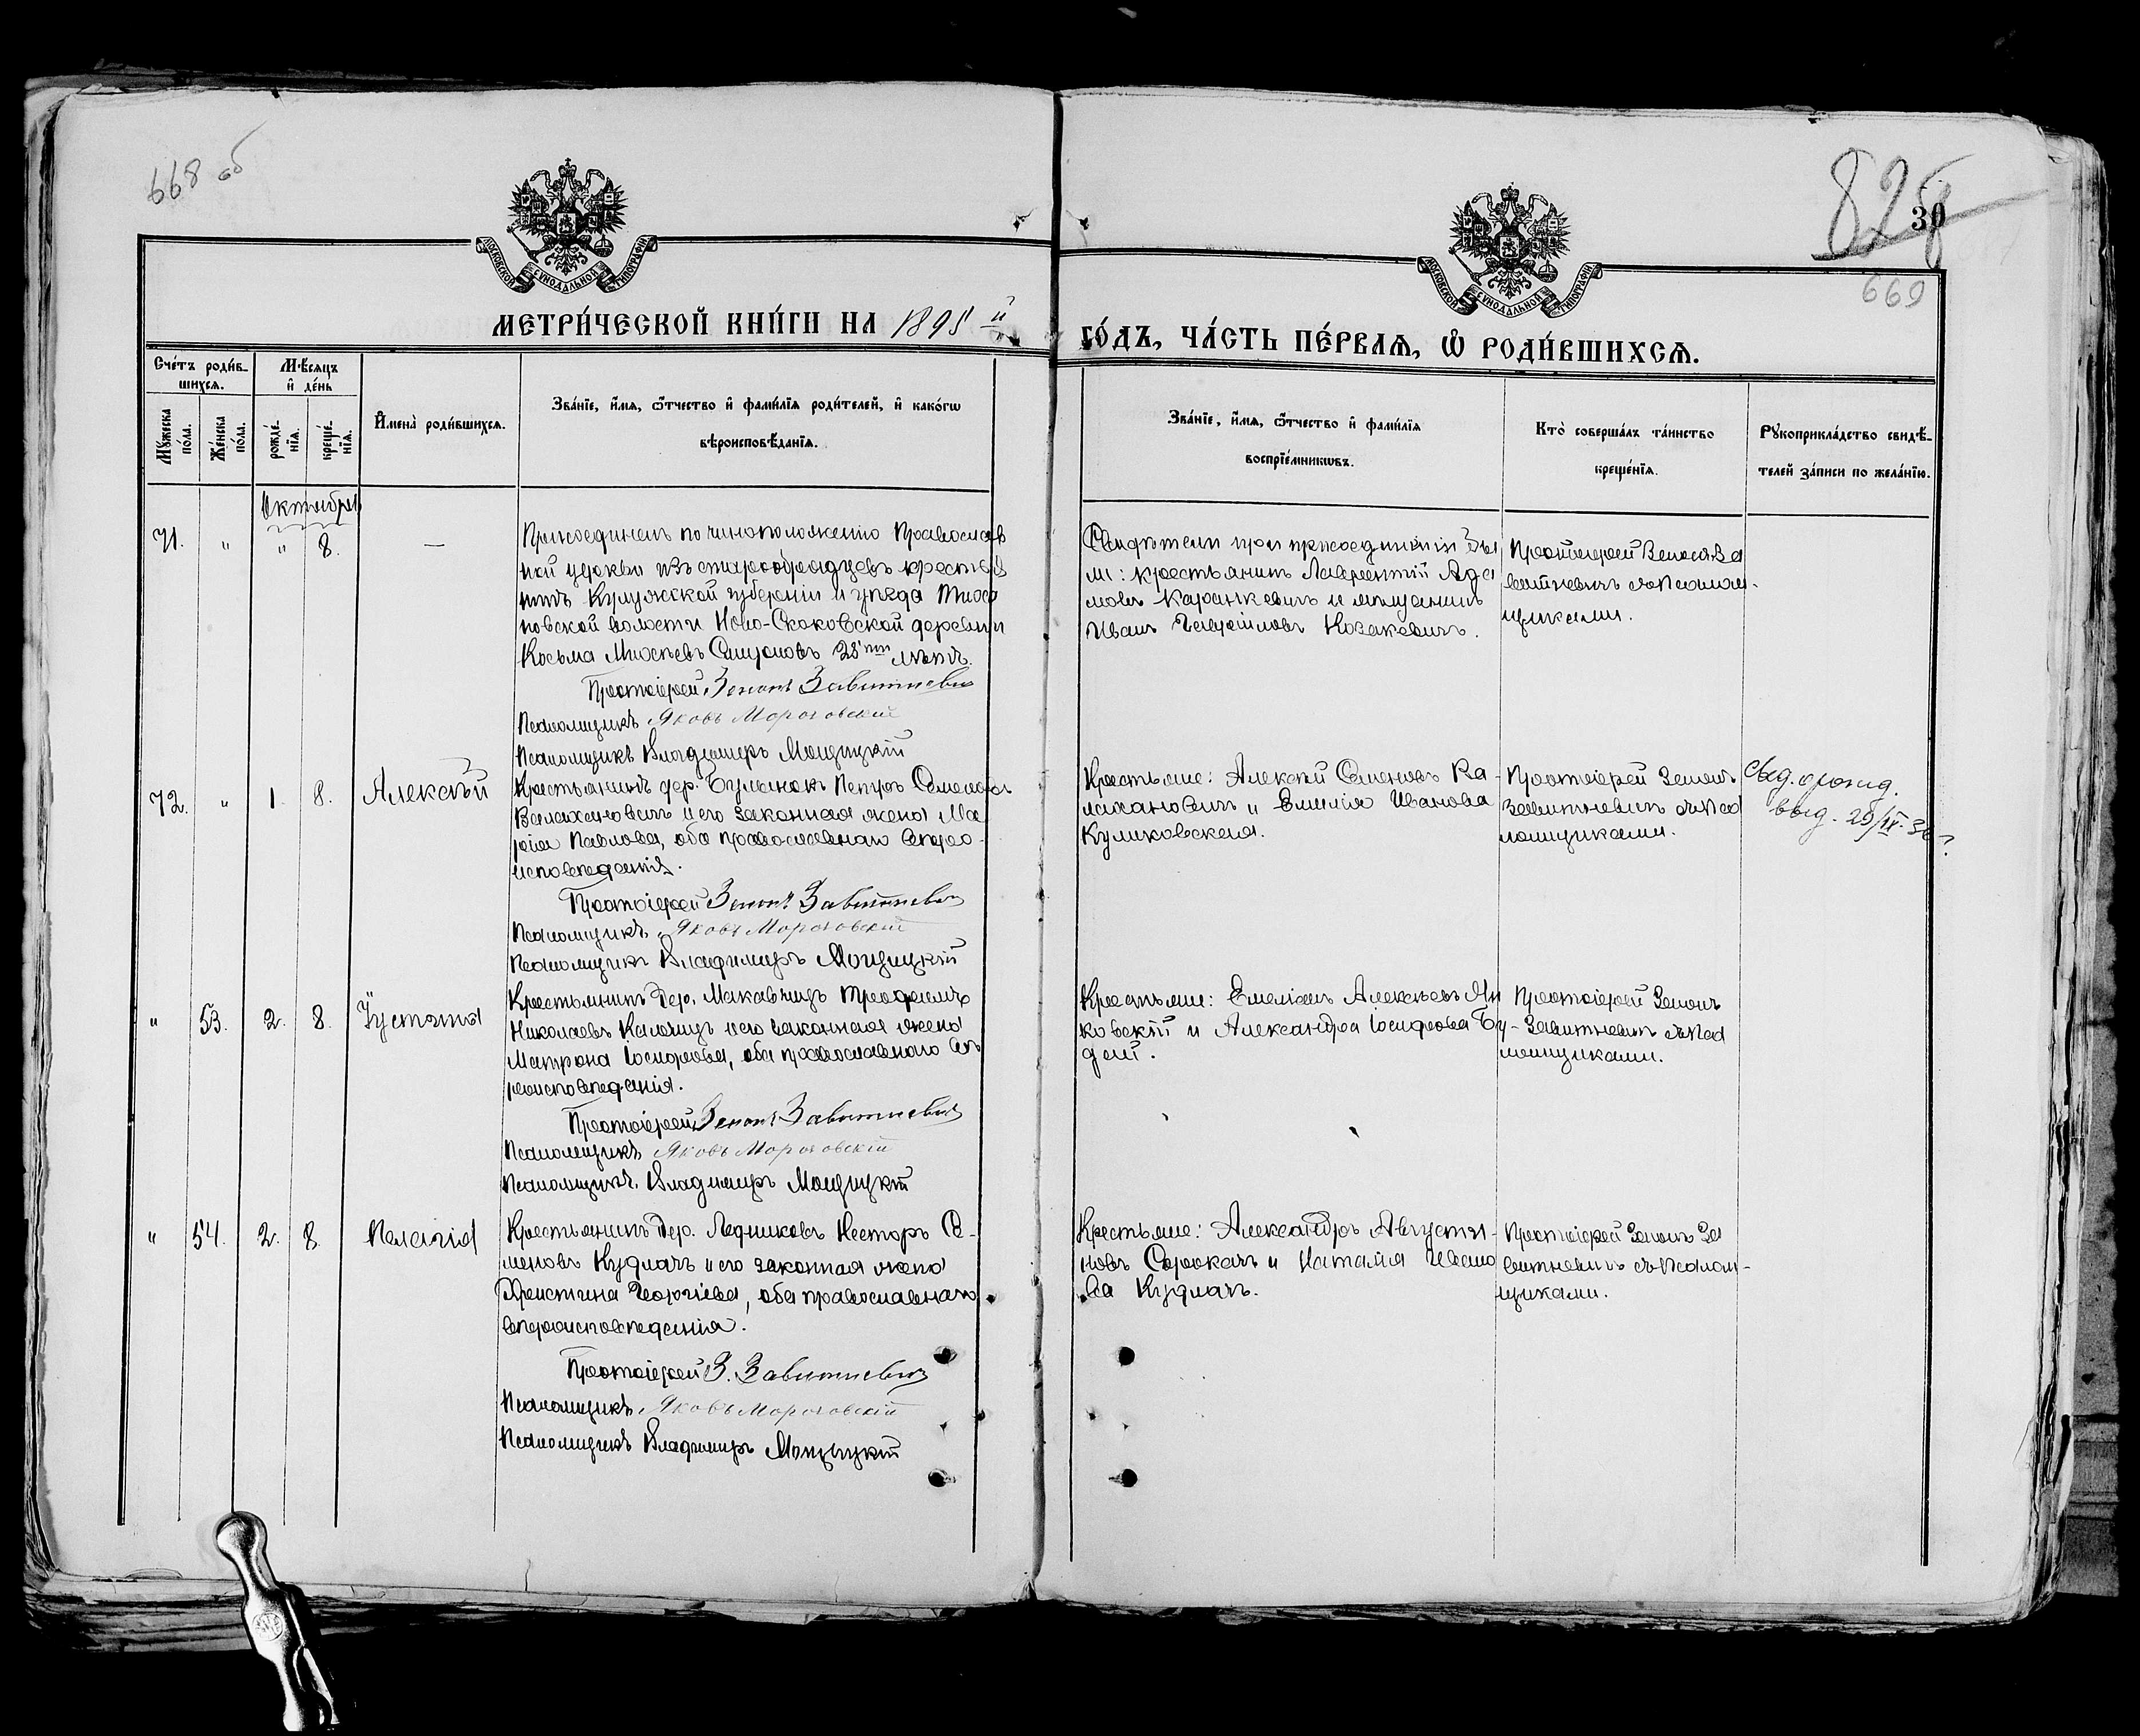 668 об
82
30
669
МОСКОВСКОЙ СѴНОДАЛЬНОЙ ТИПОГРАФІИ
МОСКОВСКОЙ СѴНОДАЛЬНОЙ ТИПОГРАФІИ
МЕТРИ́ЧЕСКОЙ КНИ́ГИ НА 1895 й
ГО́ДЪ, ЧА́СТЬ ПЕ́РВАѦ, Ѡ҆ РОДИ́ВШИХСѦ.
Сче́тъ роди́в-
шихсѧ.
Мѣ́сѧцъ
и҆ де́нь
Мꙋ́жеска по́ла.
Же́нска по́ла.
рожде́-
нїѧ.
креще́-
нїѧ.
И҆мена̀ роди́вшихсѧ.
Зва́нїе, и҆́мѧ, ѻ҆́тчество и҆ фами́лїѧ роди́телей, и҆ како́гѡ
вѣроисповѣ́данїѧ.
Зва́нїе, и҆́мѧ, ѻ҆́тчество и҆ фами́лїѧ
воспрїе́мникѡвъ.
Кто̀ соверша́лъ та́инство
креще́нїѧ.
Рꙋкоприкла́дство свидѣ́-
телей за́писи по жела́нїю.
Октябрь
71. " " 8. —
Присоединенъ по чиноположенію Православ
ной церкви изъ старообрядцевъ крестья
нинъ Калужской губерніи и уѣзда Тихо
новской волости Ново-Скаковской деревни
Косьма Моисѣевъ 28 лѣтъ.
Протоіерей Зенонъ Завитневич
Псаломщикъ Яковъ Морозовскій
Псаломщикъ Владимиръ Мощицкій
Свидѣтели при присоединеніи бы
ли: крестьянинъ Лаврентій Ада
мовъ Каранкевичъ и мѣщанинъ
Иванъ Козакевичъ.
Протоіерей Зенонъ За
витневичъ съ псалом-
щиками.
72. " 1. 8. Алексѣй
Крестьянинъ дер. Петръ Семеновъ
Валахановичъ и его законная жена Ма
рія Павлова, оба православнаго вѣро-
исповѣданія.
Протоіерей Зенонъ Завитневич
Псаломщикъ Яковъ Морозовскій
Псаломщикъ Владимиръ Мощицкій
Крестьяне: Алексѣй Семеновъ Ва-
лахановичъ и Емилія Иванова
Куликовская.
Протоіерей Зенонъ
Завитневичъ съ пса
ломщиками.
Свид. о рожд.
выд.
" 53. 2. 8. Устинія
Крестьянинъ дер. Макавчицъ Трофимъ
Николаевъ и его законная жена
Матрона Іосифова, оба православнаго вѣ
роисповѣданія.
Протоіерей Зенонъ Завитневич
Псаломщикъ Яковъ Морозовскій
Псаломщикъ Владимиръ Мощицкій
Крестьяне: Емеліанъ Алексѣевъ Ян
ковскій и Александра Іосифова Бу-
дей.
Протоіерей Зенонъ
Завитневичъ съ пса
ломщиками.
" 54. 2. 8. Пелагія
Крестьянинъ дер. Ледниковъ Несторъ Се-
меновъ Кудлачъ и его законная жена
Христина Георгіева, оба православнаго
вѣроисповѣданія.
Протоіерей З. Завитневич
Псаломщикъ Яковъ Морозовскій
Псаломщикъ Владимиръ Мощицкій
Крестьяне: Александръ Августи-
новъ Сорокачъ и Наталія Ивано
ва Кудлачъ.
Протоіерей Зенонъ За
витневичъ съ псалом-
щиками.